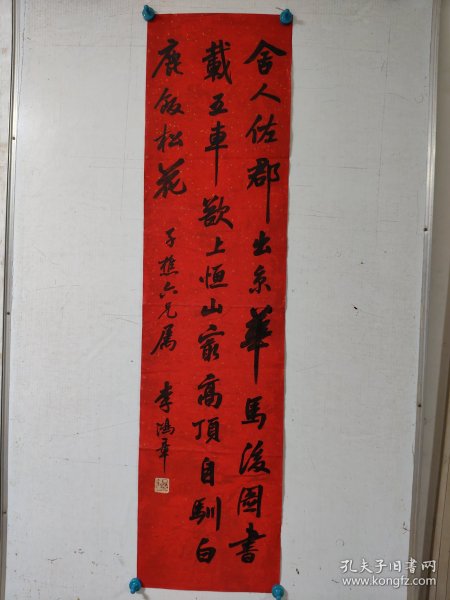 舍人佐郡出京華馬後圖書
載五車欲上恒山最高頂自馴白
鹿飯松花
子樵六兄属 李鴻華
孔夫子旧书网
www.kongfz.com